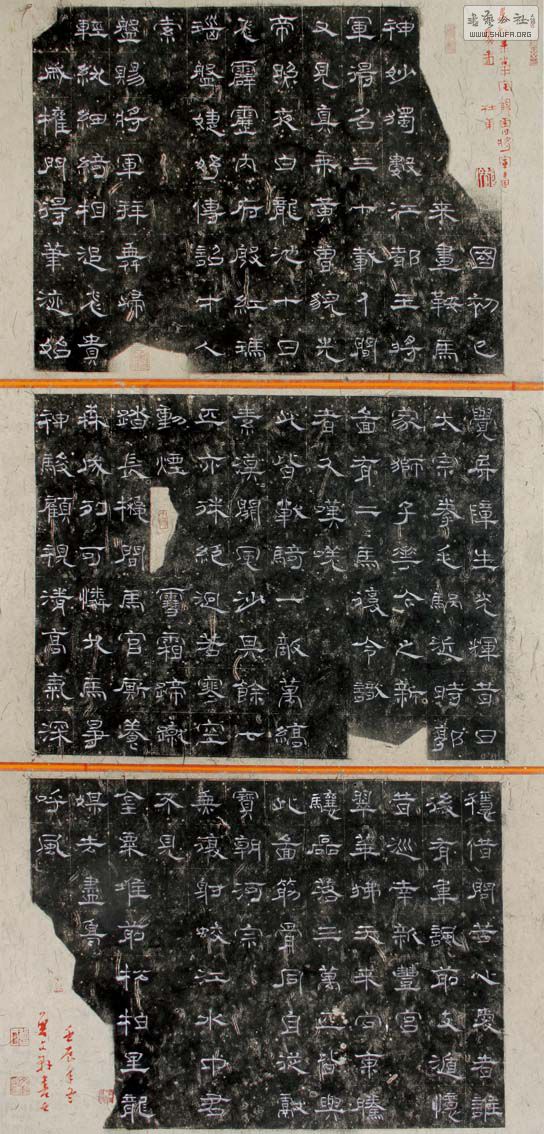 書藝公社
WWW.SHUFA.ORG
杜甫
國初已
來畫鞍馬
神妙獨數江都王將
軍得名三十載人間
又見真乘黃曾貌先
帝照夜白龍池十日
飛霹靂內府殷紅瑪
瑙盤婕妤傳詔才人
索
盤賜將軍拜舞歸
輕紈細綺相追飛貴
戚權門得筆迹始
覺屏障生光輝昔日
太宗拳毛騧近時郭
家獅子花今之新
圖有二馬復令識
者久嘆嗟
此皆戰騎一敵萬縞
素漠開風沙其餘七
匹亦殊絕迥若寒空
動煙雪霜蹄蹴
踏長楸間馬官廝養
森成列可憐九馬爭
神駿顧視清高氣深
穩借問苦心愛者誰
後有韋諷前支遁憶
昔巡幸新豐宮
翠華拂天來向東騰
驤磊落三萬匹皆與
此圖筋骨同自從獻
寶朝河宗
無復射蛟江水中君
不見
金粟堆前松柏里龍
媒去盡鳥
呼風
壬辰年冬